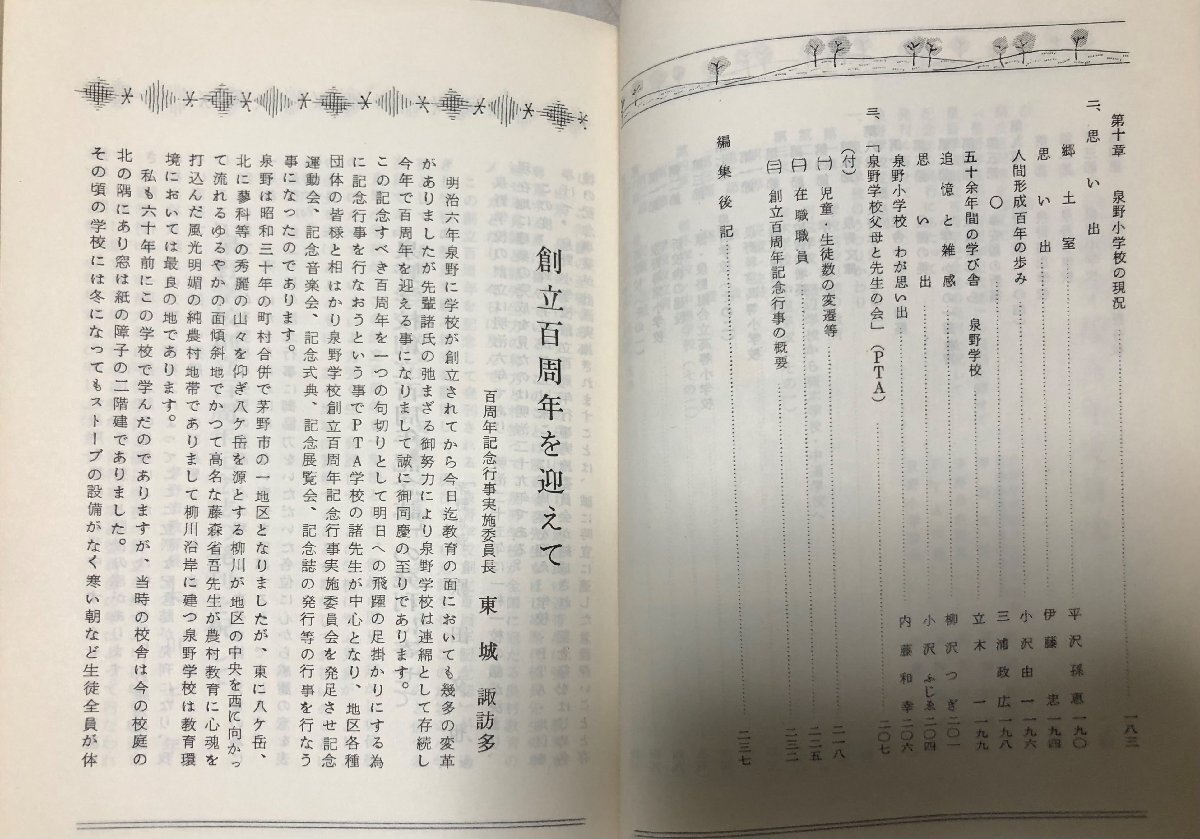 第十章　泉野小学校の現況……一八三
二、思い出
郷土室　平沢孫恵　一九〇
思い出　伊藤忠　一九四
人間形成百年の歩み　小沢由一　一九六
〇　三浦政広　一九八
五十余年間の学び舎　泉野学校　立木一　一九九
追憶と雑感　柳沢つぎ　二〇一
思い出　小沢ふじゑ　二〇四
泉野小学校　わが思い出　内藤和幸　二〇六
三、「泉野学校父母と先生の会」（PTA）……二〇七
（付）
㈠　児童・生徒数の変遷等……二一八
㈡　在職職員……二二五
㈢　創立百周年記念行事の概要……二三二
編集後記……二三七
創立百周年を迎えて
百周年記念行事実施委員長　東城諏訪多
明治六年泉野に学校が創立されてから今日迄教育の面においても幾多の変革
がありましたが先輩諸氏の弛まざる御努力により泉野学校は連綿として存続し
今年で百周年を迎える事になりまして誠に御同慶の至りであります。
この記念すべき百周年を一つの句切りとして明日への飛躍の足掛かりにする為
に記念行事を行なおうという事でPTA学校の諸先生が中心となり、地区各種
団体の皆様と相はかり泉野学校創立百周年記念行事実施委員会を発足させ記念
運動会、記念音楽会、記念式典、記念展覧会、記念誌の発行等の行事を行なう
事になったのであります。
泉野は昭和三十年の町村合併で茅野市の一地区となりましたが、東に八ケ岳、
北に蓼科等の秀麗の山々を仰ぎ八ケ岳を源とする柳川が地区の中央を西に向かっ
て流れるゆるやかの面傾斜地でかつて高名な藤森省吾先生が農村教育に心魂を
打込んだ風光明媚の純農村地帯でありまして柳川沿岸に建つ泉野学校は教育環
境においては最良の地であります。
私も六十年前にこの学校で学んだのでありますが、当時の校舎は今の校庭の
北の隅にあり窓は紙の障子の二階建でありました。
その頃の学校には冬になってもストーブの設備がなく寒い朝など生徒全員が体